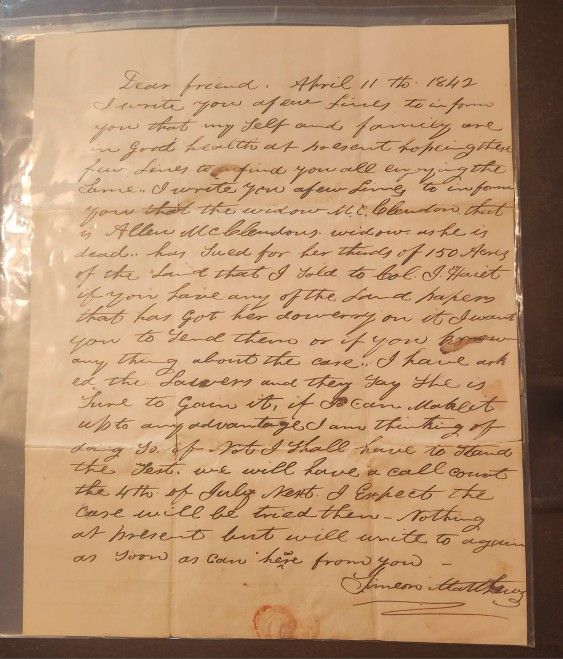 Dear friend. April 11 th. 1842
I write you afew Lines to inform
you that my Self and family are
in Good health at present hopeing these
few Lines to find you all enjoying the
Same.. I write you afew Lines to inform
you that the widow Mc,Clendon that
is Allen McClendons widow as he is
dead.. has Sued for her thirds of 150 Acres
of the Land that I Sold to Col. J
if you have any of the Land papers
that has Got her dowerry on it I want
you to Send them or if you know
any thing about the case.. I have ask
ed the Lawers and they Say She is
Sure to Gain it, if I Can Make it
up to any advantage I am thinking of
doing So. if Not I Shall have to Stand
the Test. we will have a call court
the 4th of July Next. I Expect the
Case will be tried then - Nothing
at present but will write to again
as Soon as can here from you -
Simeon Matthews